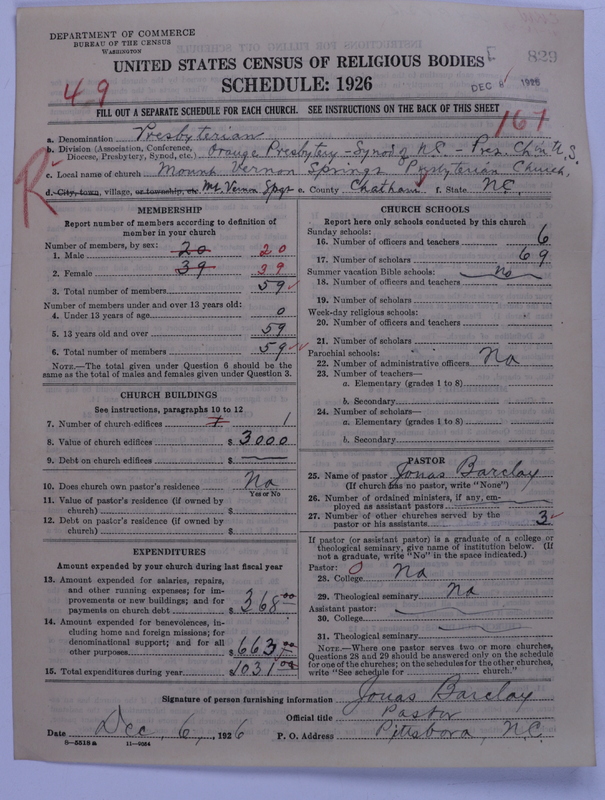 DEPARTMENT OF COMMERCE
BUREAU OF THE CENSUS
WASHINGTON
829
UNITED STATES CENSUS OF RELIGIOUS BODIES
SCHEDULE: 1926
DEC 8 1926
49
FILL OUT A SEPARATE SCHEDULE FOR EACH CHURCH. SEE INSTRUCTIONS ON THE BACK OF THIS SHEET
167
a. Denomination Presbyterian
b. Division (Association, Conference, Diocese, Presbytery, Synod, etc.) Orange Presbytery - Synod of N.C. - Pres. Ch. in U.S.
c. Local name of church Mount Vernon Springs Presbyterian Church.
d. City, town, village, or township, etc. Mt. Vernon Spgs e. County Chatham f. State N.C.
R
MEMBERSHIP
Report number of members according to definition of
member in your church
Number of members, by sex:
1. Male 20 20
2. Female 39 39
3. Total number of members 59
Number of members under and over 13 years old:
4. Under 13 years of age 0
5. 13 years old and over 59
6. Total number of members 59
NOTE.—The total given under Question 6 should be
same as the total of males and females given under Question 3.
CHURCH BUILDINGS
See instructions, paragraphs 10 to 12
7. Number of church edifices 1 1
8. Value of church edifices $ 3000
9. Debt on church edifices $
10. Does church own pastor's residence No
Yes or No
11. Value of pastor's residence (if owned by
church) $
12. Debt on pastor's residence (if owned by
church) $
EXPENDITURES
Amount expended by your church during last fiscal year
13. Amount expended for salaries, repairs,
and other running expenses; for im-
provements or new buildings; and for
payments on church debt $ 368.00
14. Amount expended for benevolences, in-
cluding home and foreign missions; for
denominational support; and for all
other purposes $ 663.00
15. Total expenditures during year $ 1031.00
CHURCH SCHOOLS
Report here only schools conducted by this church
Sunday schools:
16. Number of officers and teachers 6
17. Number of scholars 69
Summer vacation Bible schools: no
18. Number of officers and teachers
19. Number of scholars
Week-day religious schools:
20. Number of officers and teachers
21. Number of scholars
Parochial schools:
22. Number of administrative officers No
23. Number of teachers—
a. Elementary (grades 1 to 8)
b. Secondary
24. Number of scholars—
a. Elementary (grades 1 to 8)
b. Secondary
PASTOR
25. Name of pastor Jonas Barclay
(If church has no pastor, write "None")
26. Number of ordained ministers, if any, em-
ployed as assistant pastors
27. Number of other churches served by the
pastor or his assistants 3
If pastor (or assistant pastor) is a graduate of a college or
theological seminary, give name of institution below. (If
not a graduate, write "No" in the space indicated.)
Pastor:
28. College No
29. Theological seminary No
Assistant pastor:
30. College
31. Theological seminary
NOTE.—Where one pastor serves two or more churches,
Questions 28 and 29 should be answered only on the schedule
for one of the churches; on the schedules for the other churches,
write "See schedule for church."
Signature of person furnishing information Jonas Barclay
Official title Pastor
Date Dec 6, 1926 P. O. Address Pittsboro, N.C.
8—5518 a 11—9264